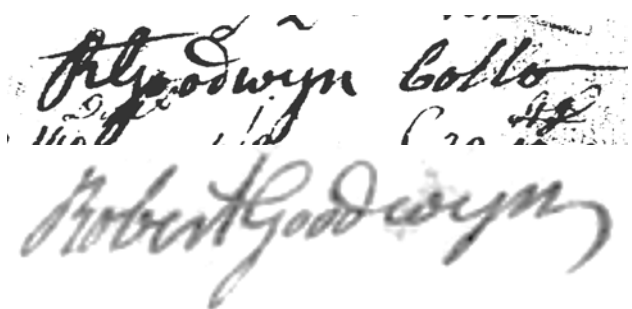 RGoodwyn Collo
Robert Goodwyn